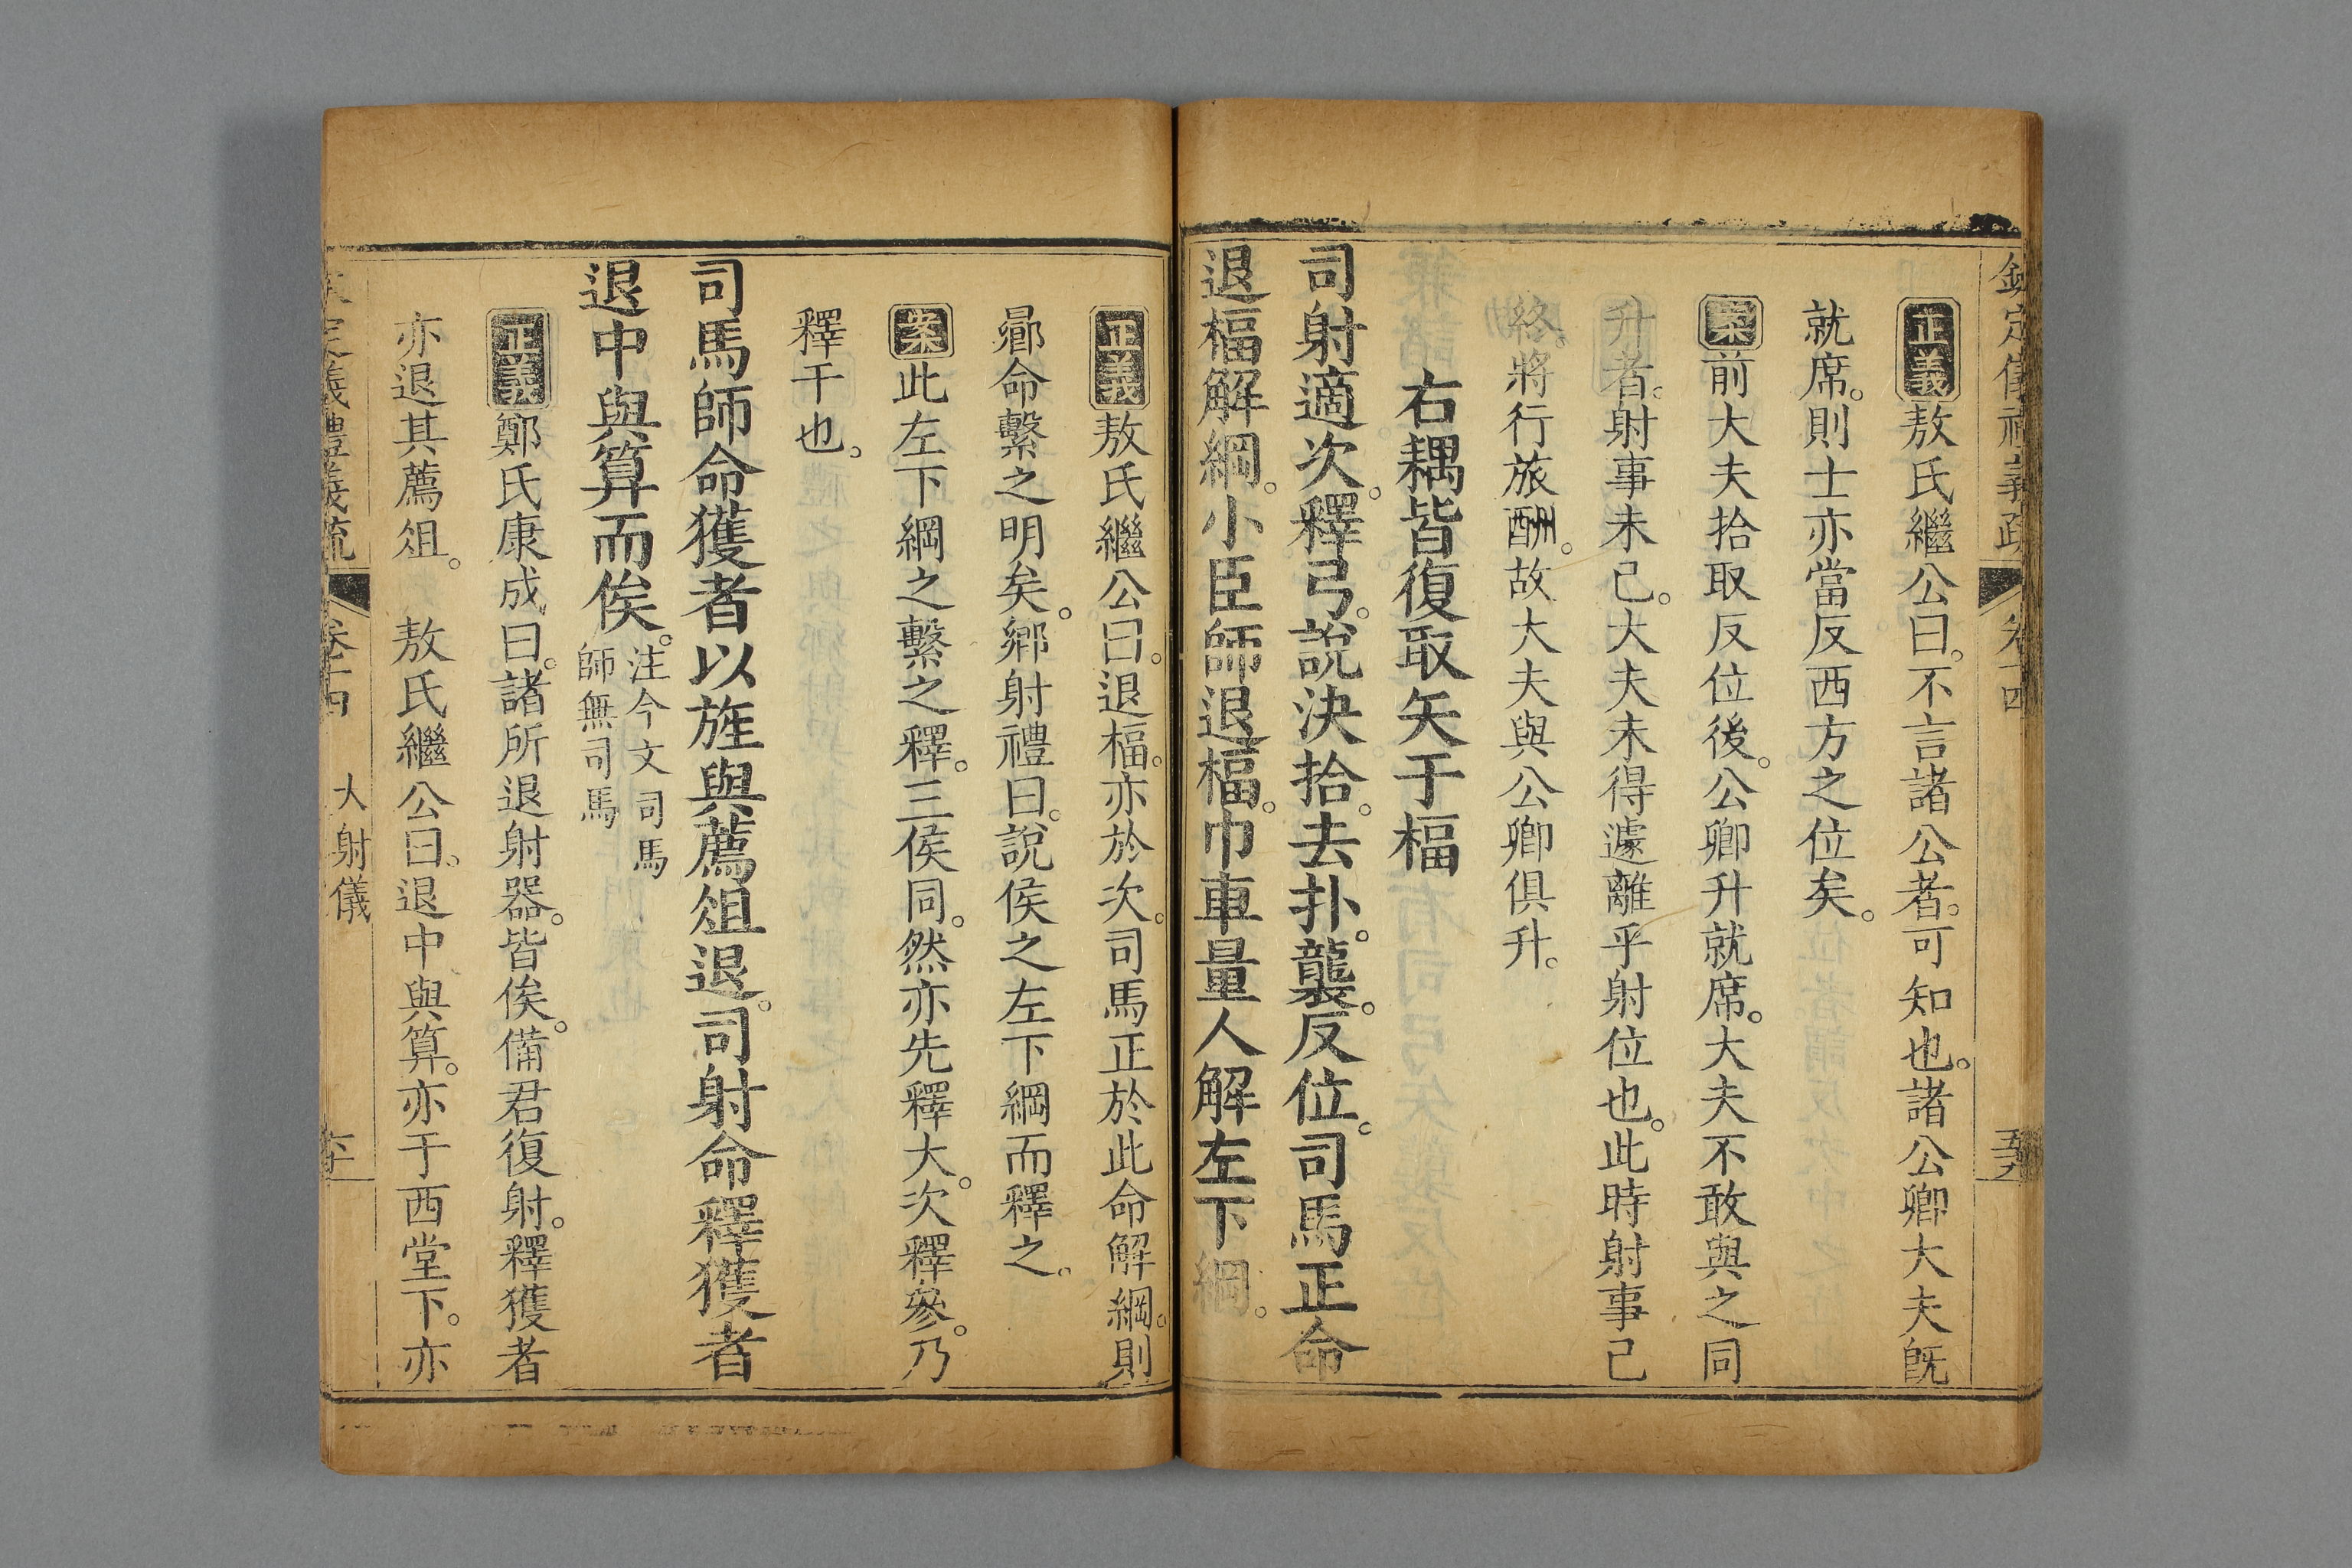 欽定儀禮義疏 卷十四
正義敖氏繼公曰。不言諸公者。可知也。諸公卿大夫旣
就席。則士亦當反西方之位矣。
案前大夫拾取反位後。公卿升就席。大夫不敢與之同
升者。射事未已。大夫未得遽離乎射位也。此時射事已
終。將行旅酬。故大夫與公卿俱升。
右耦皆復取矢于楅
司射適次。釋弓。說決拾。去扑。襲。反位。司馬正命
退楅解綱。小臣師退楅。巾車量人解左下綱。
正義敖氏繼公曰。退楅。亦於次。司馬正於此命解綱。則
曏命繫之明矣。鄉射禮曰。說侯之左下綱而釋之。
案此左下綱之繫之釋。三侯同。然亦先釋大。次釋參。乃
釋干也。
司馬師命獲者以旌與薦俎退。司射命釋獲者
退中與算而俟。注今文司馬師無司馬
正義鄭氏康成曰。諸所退射器。皆俟。備君復射。釋獲者
亦退其薦俎。 敖氏繼公曰。退中與算。亦于西堂下。亦
定儀禮義疏 卷十四 大射儀